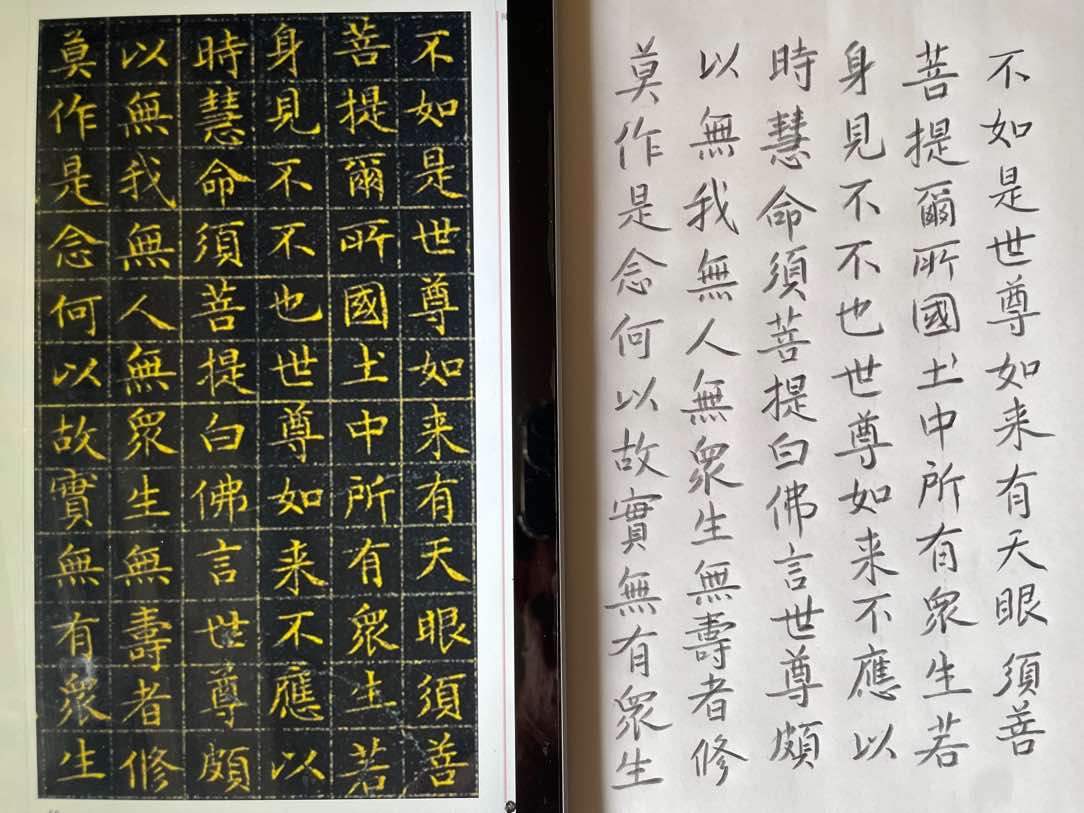 不如是世尊如来有天眼須善
菩提爾所國土中所有衆生若
身見不不也世尊如来不應以
時慧命須菩提白佛言世尊頗
以無我無人無衆生無壽者修
莫作是念何以故實無有衆生
不如是世尊如来有天眼須善
菩提爾所國土中所有衆生若
身見不不也世尊如来不應以
時慧命須菩提白佛言世尊頗
以無我無人無衆生無壽者修
莫作是念何以故實無有衆生